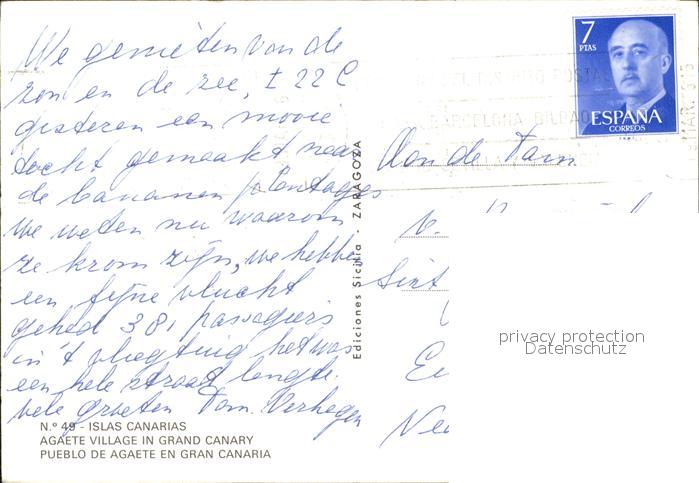 We genieten van de
zon en de zee, ± 22 C
gisteren een mooie
tocht gemaakt naar
de bananen plantages
we weten nu waarom
ze krom zijn, we hebben
een fijne vlucht
gehad 381 passagiers
in 't vliegtuig het was
een hele straat lengte.
vele groeten Fam. Verhagen
N.º 49 - ISLAS CANARIAS
AGAETE VILLAGE IN GRAND CANARY
PUEBLO DE AGAETE EN GRAN CANARIA
Ediciones Sicilia - ZARAGOZA
7
PTAS
ESPAÑA
CORREOS
POSTAL
BARCELONA BILBAO
Aan de Fam
privacy protection
Datenschutz